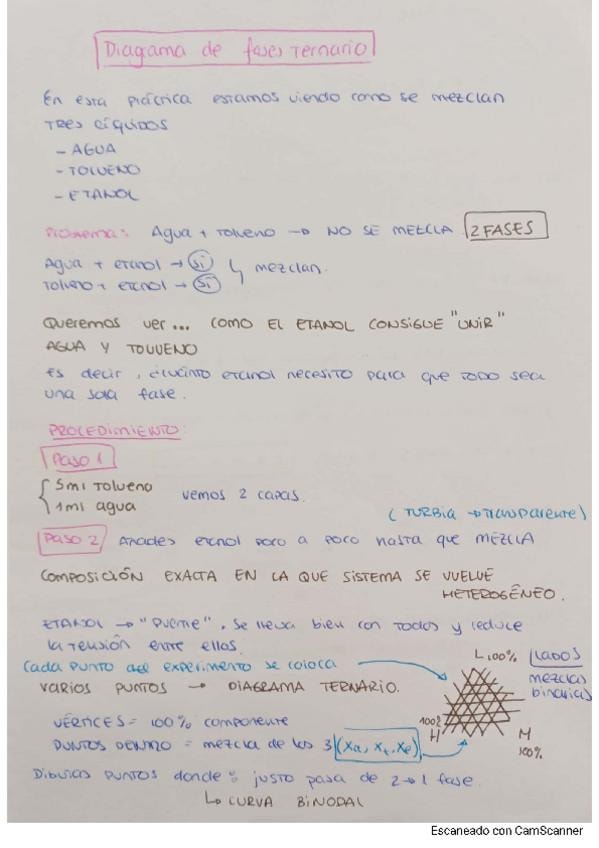 Diagama de fases Ternario
En esta práctica estamos viendo como se mezclan
TRES LÍQUIDOS
- AGUA
- TOLUENO
- ETANOL
Problema: Agua + Tolueno → NO SE MEZCLA 2 FASES
Agua + etanol → Sí
Tolueno + etanol → Sí
mezclan.
Queremos ver... como EL ETANOL CONSIGUE "UNIR"
AGUA Y TOLUENO
Es decir, ¿cuánto etanol necesito para que TODO sea
una sola fase.
PROCEDIMIENTO:
PASO 1
5ml Tolueno
1ml agua
vemos 2 capas.
(TURBIA → TRANSPARENTE)
PASO 2 Añades etanol poco a poco hasta que MEZCLA
COMPOSICIÓN EXACTA EN LA QUE SISTEMA SE VUELVE
HETEROGÉNEO.
ETANOL → "PUENTE". Se lleva bien con TODOS y reduce
la tensión entre ellos.
Cada PUNTO del experimento se coloca
L 100%
LADOS
mezclas
binarias
VARIOS PUNTOS → DIAGRAMA TERNARIO.
VÉRTICES = 100% componente
100%
H
M
100%
PUNTOS DENTRO = mezcla de los 3 (Xa, Xt, Xe)
Dibujas PUNTOS donde: justo pasa de 2→1 fase.
↳ CURVA BINODAL
Escaneado con CamScanner